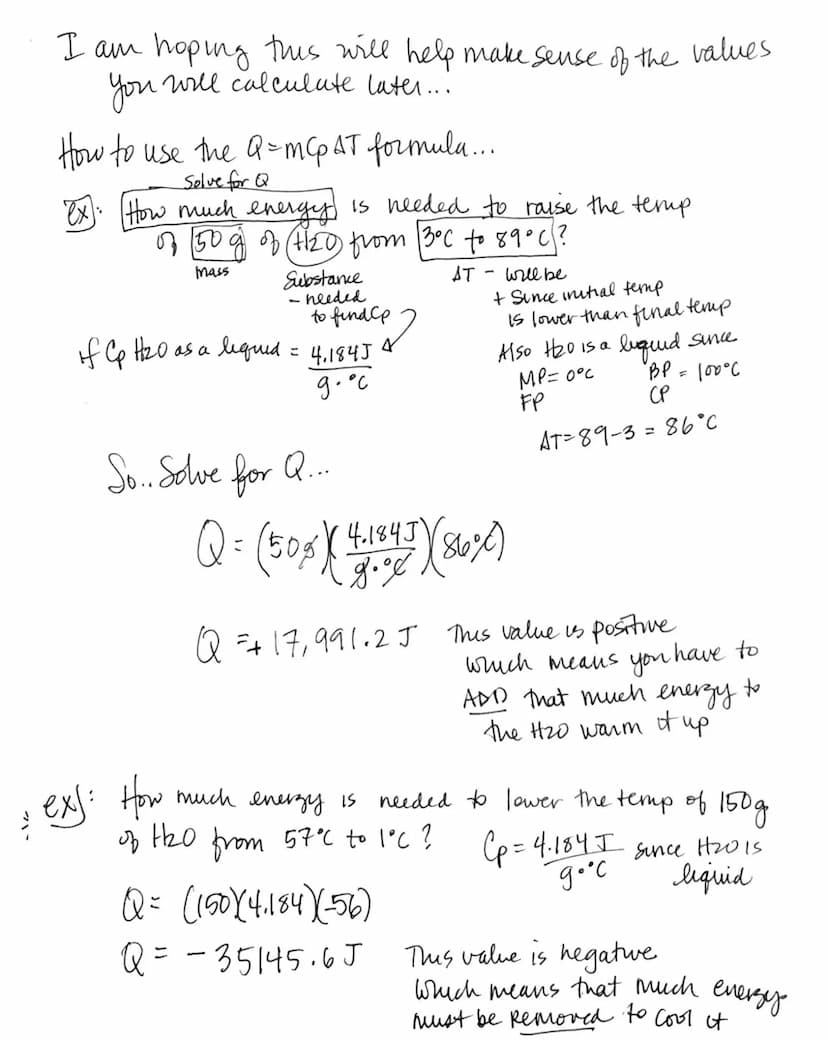 I am hoping this will help make sense of the values
you will calculate later...
How to use the Q=mCpΔT formula...
Solve for Q
ex: How much energy is needed to raise the temp
of 50 g of H2O from 3°C to 89°C?
mass
Substance
- needed
to find Cp
ΔT - will be
+ Since initial temp
is lower than final temp
Also H2O is a liquid since
MP= 0°C BP = 100°C
FP CP
ΔT=89-3 = 86°C
if Cp H2O as a liquid = 4.184J
g·°C
So.. Solve for Q...
Q = (50g)(4.184J/g·°C)(86°C)
Q =+ 17,991.2 J
This value is positive
which means you have to
ADD that much energy to
the H2O warm it up
ex: How much energy is needed to lower the temp of 150g
of H2O from 57°C to 1°C?
Cp = 4.184 J since H2O is
g·°C liquid
Q= (150)(4.184)(-56)
Q = - 35145.6 J
This value is negative
which means that much energy
must be REMOVED to cool it